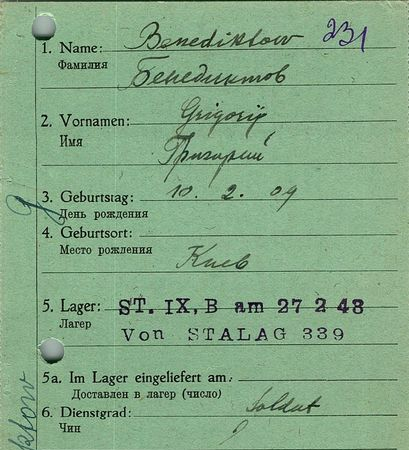 231
1. Name: Benediktow
Фамилия Бенедиктов
2. Vornamen: Grigorij
Имя Григорий
3. Geburtstag: 10. 2. 09
День рождения
4. Geburtsort:
Место рождения
Киев
5. Lager: ST. IX, B am 27 2 43
Лагер Von STALAG 339
5a. Im Lager eingeliefert am:
Доставлен в лагер (число)
6. Dienstgrad: Soldat
Чин